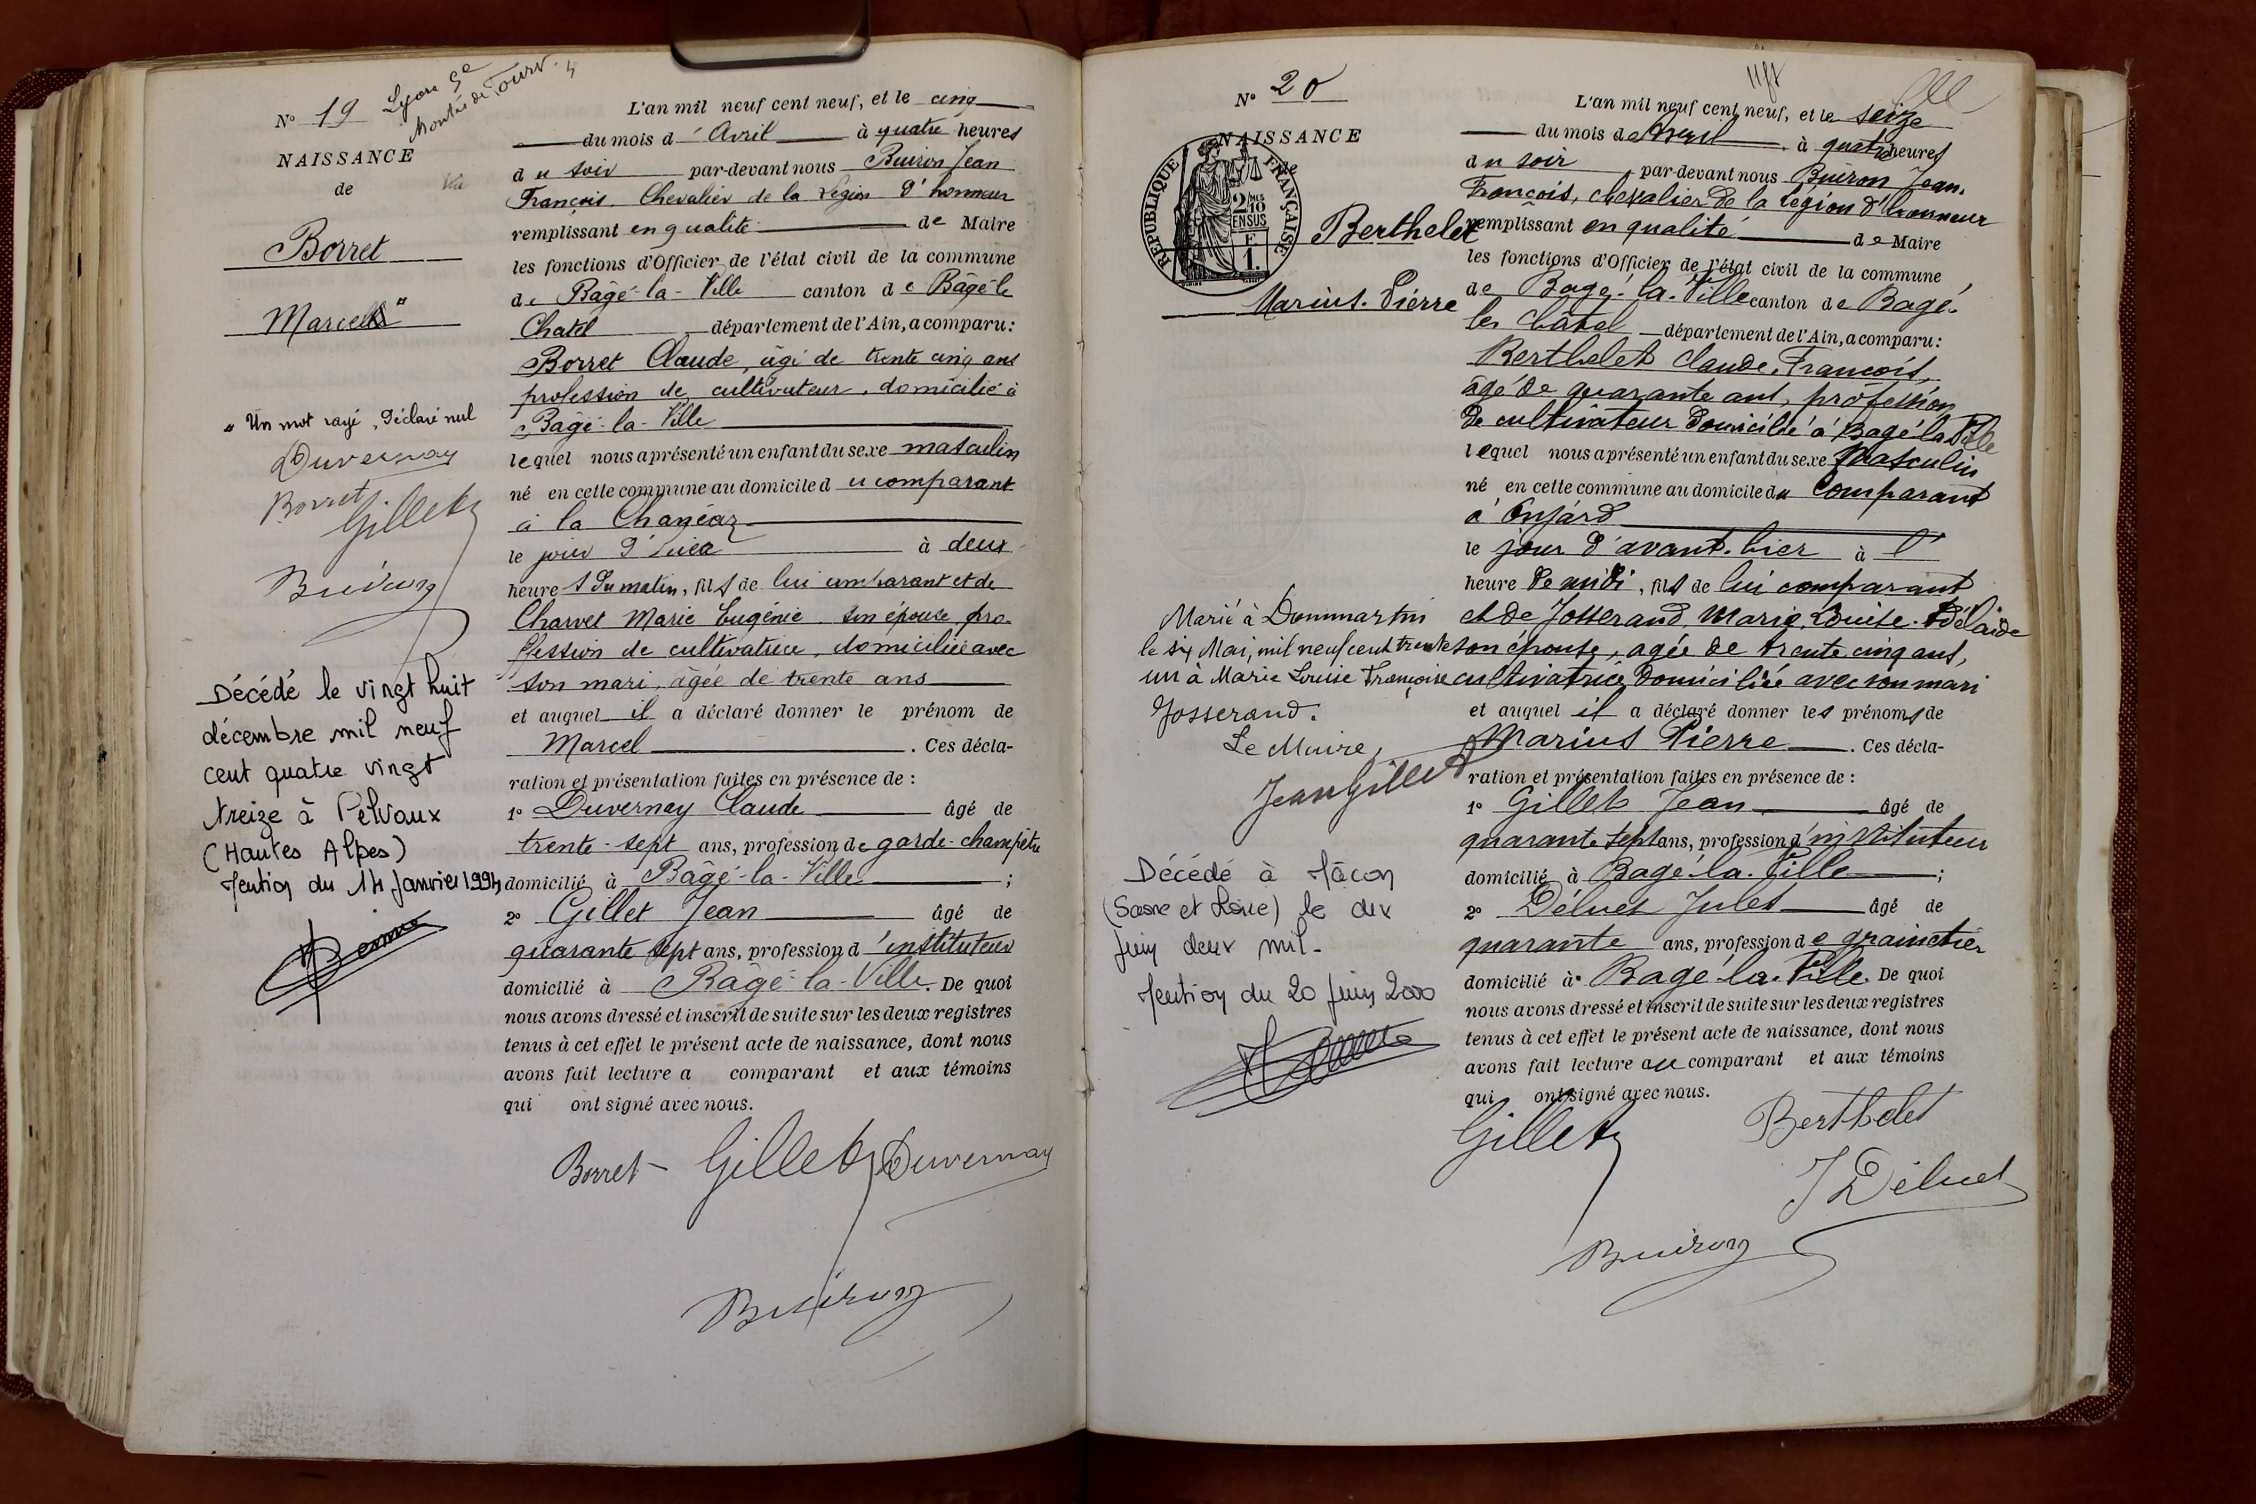 N° 19
Lyon 5e
Montée de
NAISSANCE
de
Borret
Marcel
" Un mot rayé, Déclaré nul
Duvernay
Borret
Gillet
Buiron
Décédé le vingt huit
décembre mil neuf
cent quatre vingt
treize à Pelvoux
(Hautes Alpes)
Mention du 14 Janvier 1994
L'an mil neuf cent neuf, et le cinq
du mois d'Avril à quatre heures
du soir par-devant nous Buiron Jean
François, Chevalier de la Légion d'honneur
remplissant en qualité de Maire
les fonctions d'Officier de l'état civil de la commune
de Bâgé-la-Ville canton de Bâgé-le
Chatel département de l'Ain, a comparu:
Borret Claude, âgé de trente cinq ans
profession de cultivateur, domicilié à
Bâgé-la-Ville
lequel nous a présenté un enfant du sexe masculin
né en cette commune au domicile du comparant
à la
le jour d'hier à deux
heures du matin, fils de lui comparant et de
Charvet Marie Eugénie son épouse pro-
fession de cultivatrice, domiciliée avec
son mari, âgée de trente ans
et auquel il a déclaré donner le prénom de
Marcel. Ces décla-
ration et présentation faites en présence de :
1° Duvernay Claude âgé de
trente-sept ans, profession de garde-champêtre
domicilié à Bâgé-la-Ville ;
2° Gillet Jean âgé de
quarante sept ans, profession d'instituteur
domicilié à Bâgé-la-Ville. De quoi
nous avons dressé et inscrit de suite sur les deux registres
tenus à cet effet le présent acte de naissance, dont nous
avons fait lecture a comparant et aux témoins
qui ont signé avec nous.
Borret Gillet Duvernay
Buiron
N° 20
NAISSANCE
de
REPUBLIQUE FRANÇAISE
2/10
EN SUS
1.
Berthelet
Marius-Pierre
Marié à Dommartin
le six Mai, mil neuf cent trente
un à Marie Louise Françoise
Josserand.
Le Maire,
Jean Gillet
Décédé à Mâcon
(Saône et Loire) le dix
juin deux mil.
Mention du 20 juin 2000
L'an mil neuf cent neuf, et le seize
du mois d'Avril à quatre heures
du soir par-devant nous Buiron Jean-
François, chevalier de la Légion d'honneur
remplissant en qualité de Maire
les fonctions d'Officier de l'état civil de la commune
de Bagé-la-Ville canton de Bagé-
le Châtel département de l'Ain, a comparu:
Berthelet Claude, François,
âgé de quarante ans, profession
de cultivateur domicilié à Bagé la Ville
lequel nous a présenté un enfant du sexe masculin
né en cette commune au domicile du comparant
à Onjard
le jour d'avant-hier à l'
heure de midi, fils de lui comparant
et de Josserand, Marie, Louise Adélaïde
son épouse, agée de trente cinq ans,
cultivatrice, domiciliée avec son mari
et auquel il a déclaré donner les prénoms de
Marius Pierre. Ces décla-
ration et présentation faites en présence de :
1° Gillet Jean âgé de
quarante sept ans, profession d'instituteur
domicilié à Bagé-la-Ville ;
2° Déluet Jules âgé de
quarante ans, profession de grainetier
domicilié à Bagé-la-Ville. De quoi
nous avons dressé et inscrit de suite sur les deux registres
tenus à cet effet le présent acte de naissance, dont nous
avons fait lecture au comparant et aux témoins
qui ont signé avec nous.
Gillet Berthelet
J Déluet
Buiron